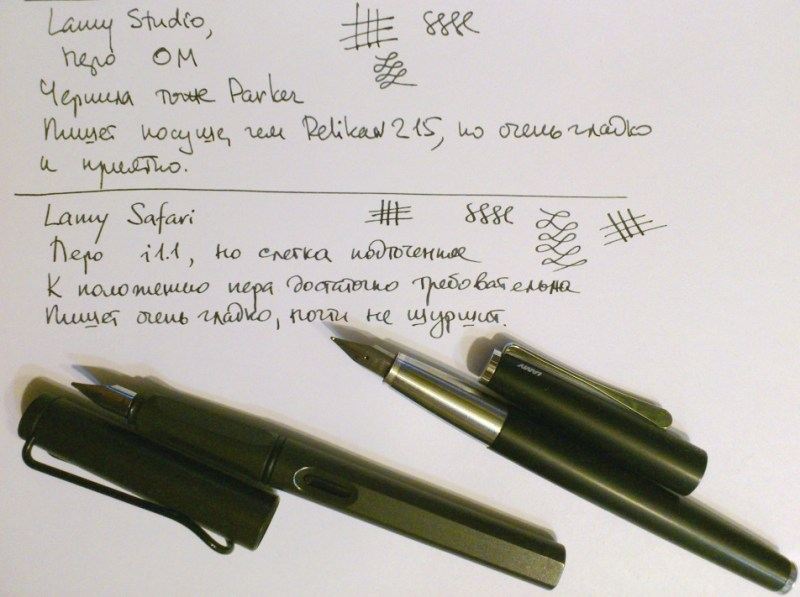 Lamy Studio,
перо ОМ
Чернила тоже Parker
Пишет посуше, чем Pelikan 215, но очень гладко
и приятно.
Lamy Safari
Перо i1.1, но слегка подточенное
К положению пера достаточно требовательна
Пишет очень гладко, почти не шуршит.
LAMY